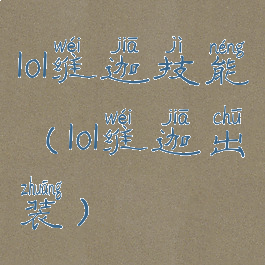 wéi jiā jì néng
lol维迦技能
wéi jiā chū
（lol维迦出
zhuāng
装）